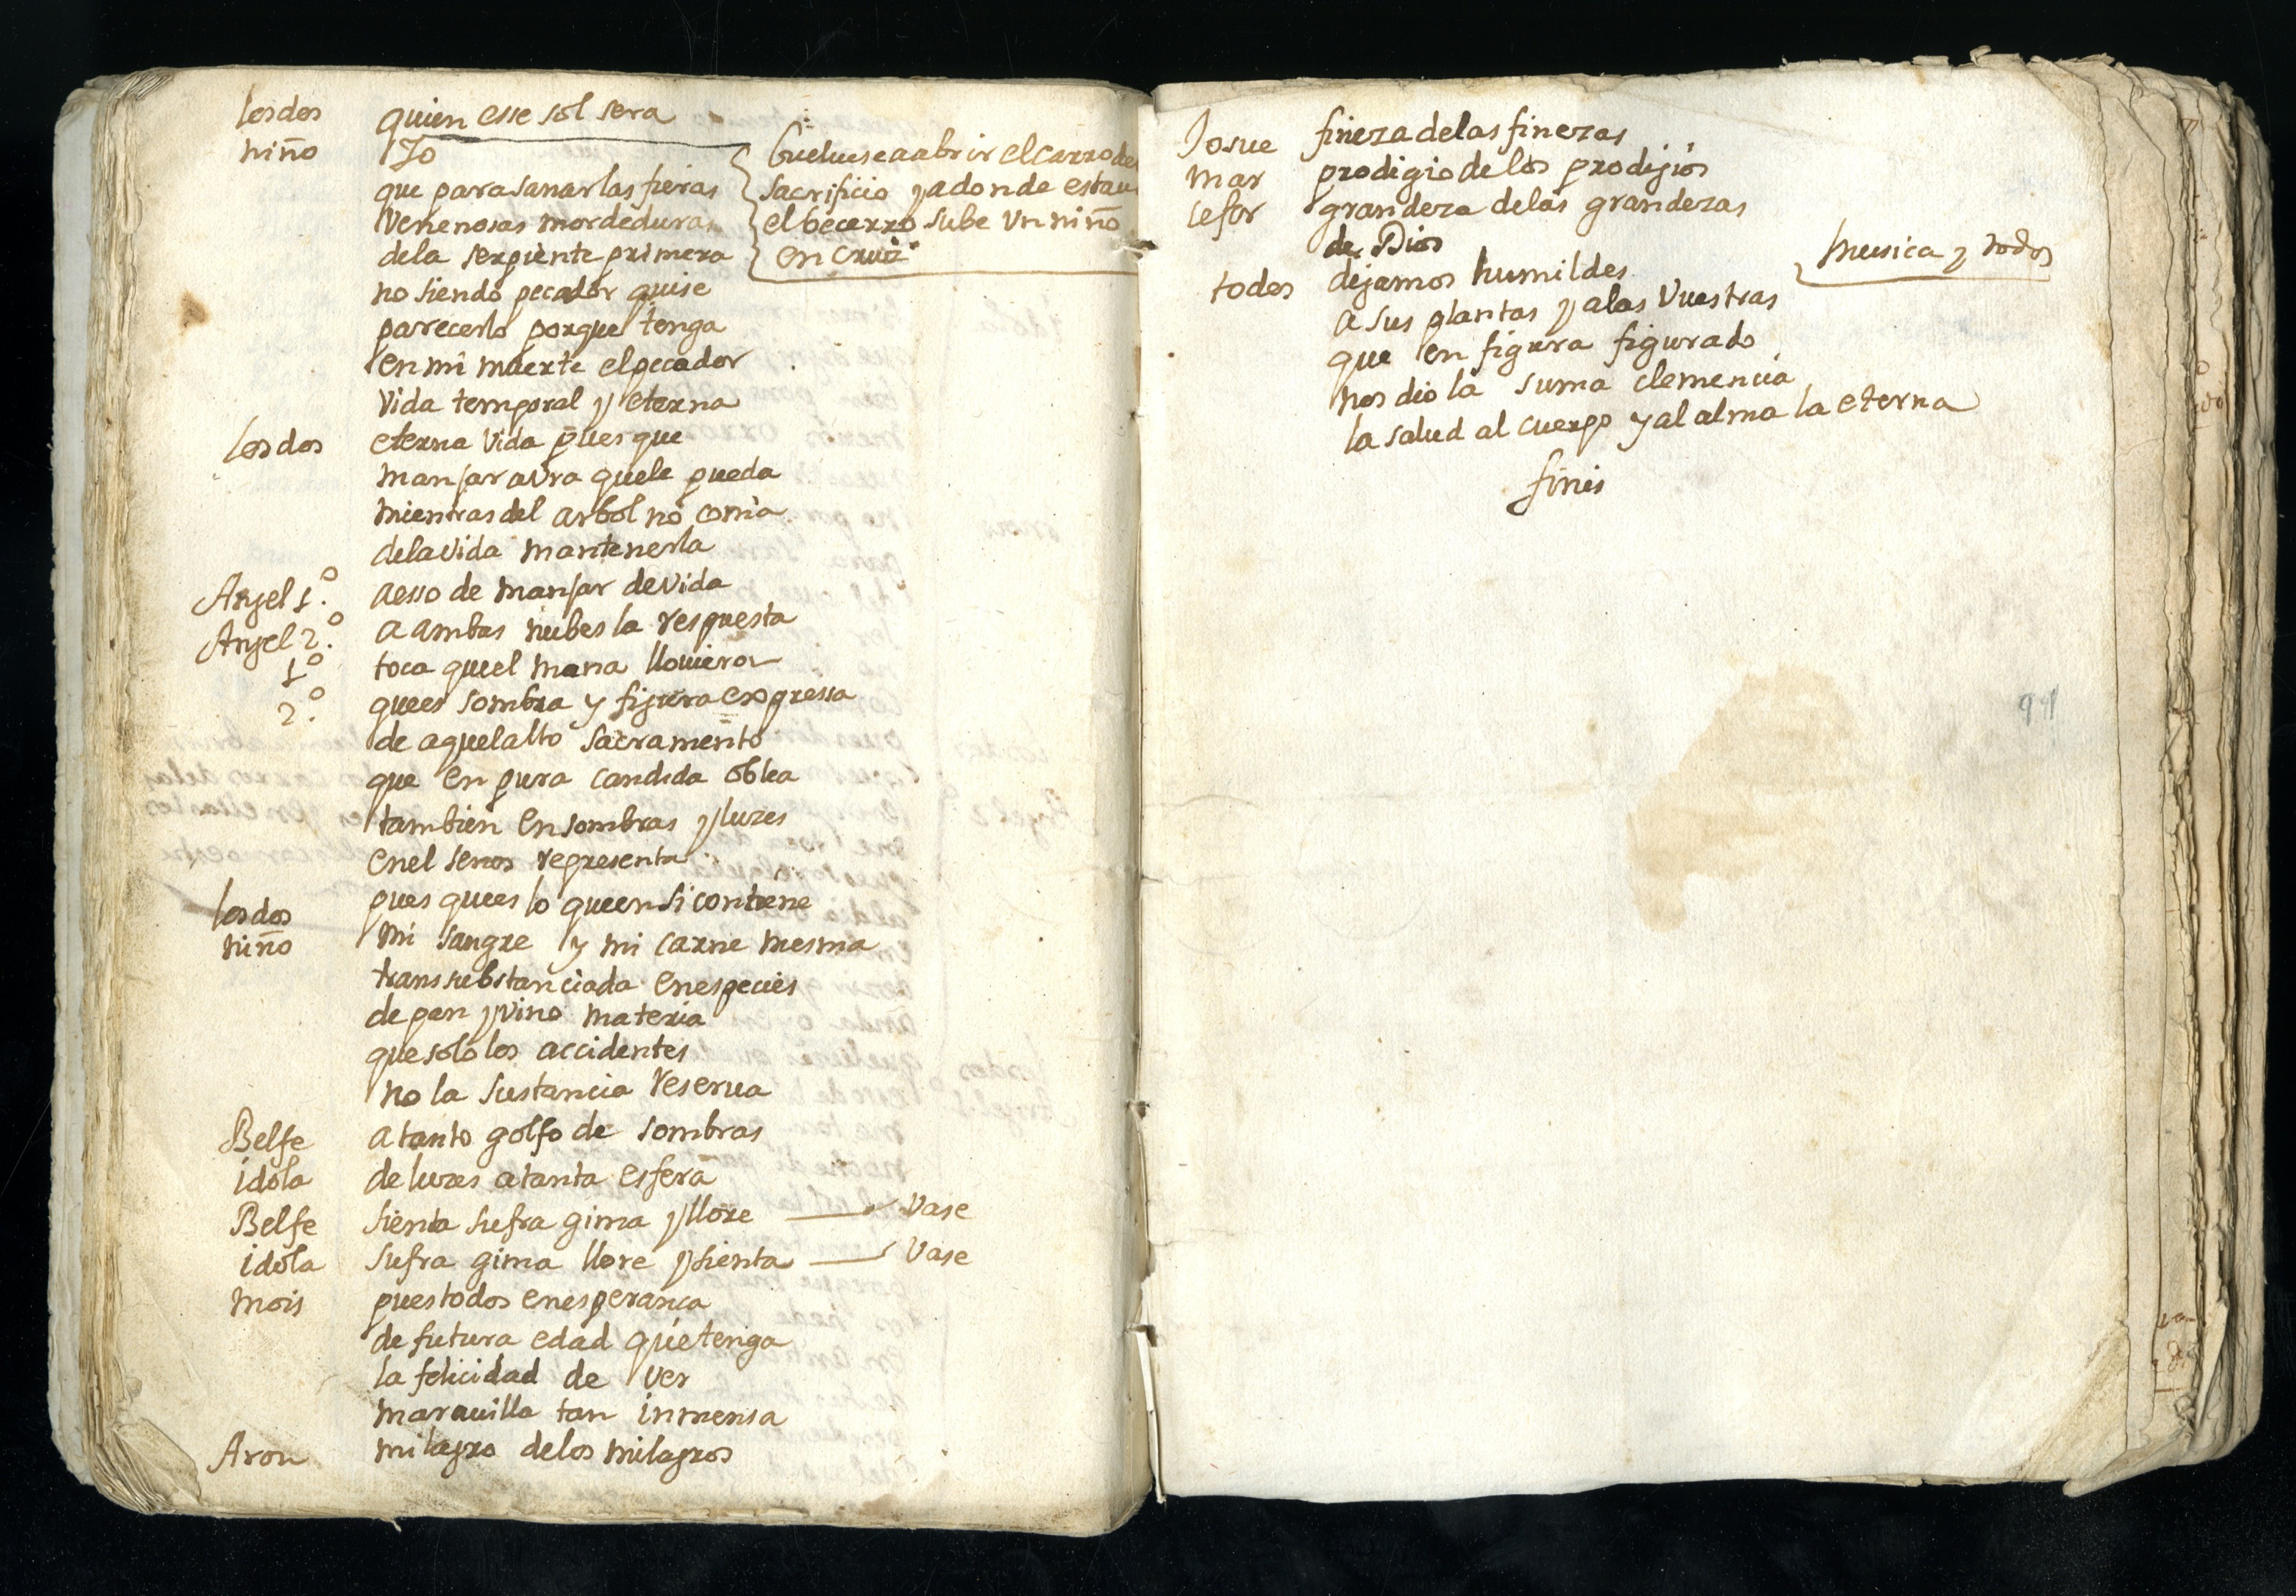 los dos quien esse sol sera
niño Yo
que para sanar las fieras
venenosas mordeduras
de la serpiente primera
buelvese a abrir el carro de
sacrificio y adonde estau
el becerro sube Un niño
en cruz
no siendo pecador quise
parecerlo porque tenga
en mi muerte el pecador
Vida temporal y eterna
los dos eterna vida pues que
manjar avra que le pueda
mientras del arbol no coma
de la vida mantenerla
Angel 1.º a esso de manjar de vida
Angel 2.º a ambas nubes la respuesta
1º toca que el mana llovieron
2.º que es sombra y figura expressa
de aquel alto sacramento
que en pura candida oblea
tambien en sombras y luzes
en el senos representa
los dos pues que es lo que en si contiene
niño Mi sangre y mi carne mesma
transsubstanciada en especies
de pan y vino materia
que solo los accidentes
no la sustancia reserva
Belfe a tanto golfo de sombras
idola de luzes a tanta esfera
Belfe sienta sufra gima y llore Vase
idola sufra gima llore y sienta Vase
Mois pues todos en esperanca
de futura edad que tenga
la felicidad de ver
maravilla tan inmensa
Aron milagro de los milagros
Josue fineza de las finezas
Mar prodigio de los prodigios
Cefor grandeza de las grandezas
de Dios
todos dejamos humildes
musica y todos
a sus plantas y a las Vuestras
que en figura figurado
nos dio la suma clemencia
la salud al cuerpo y al alma la eterna
finis